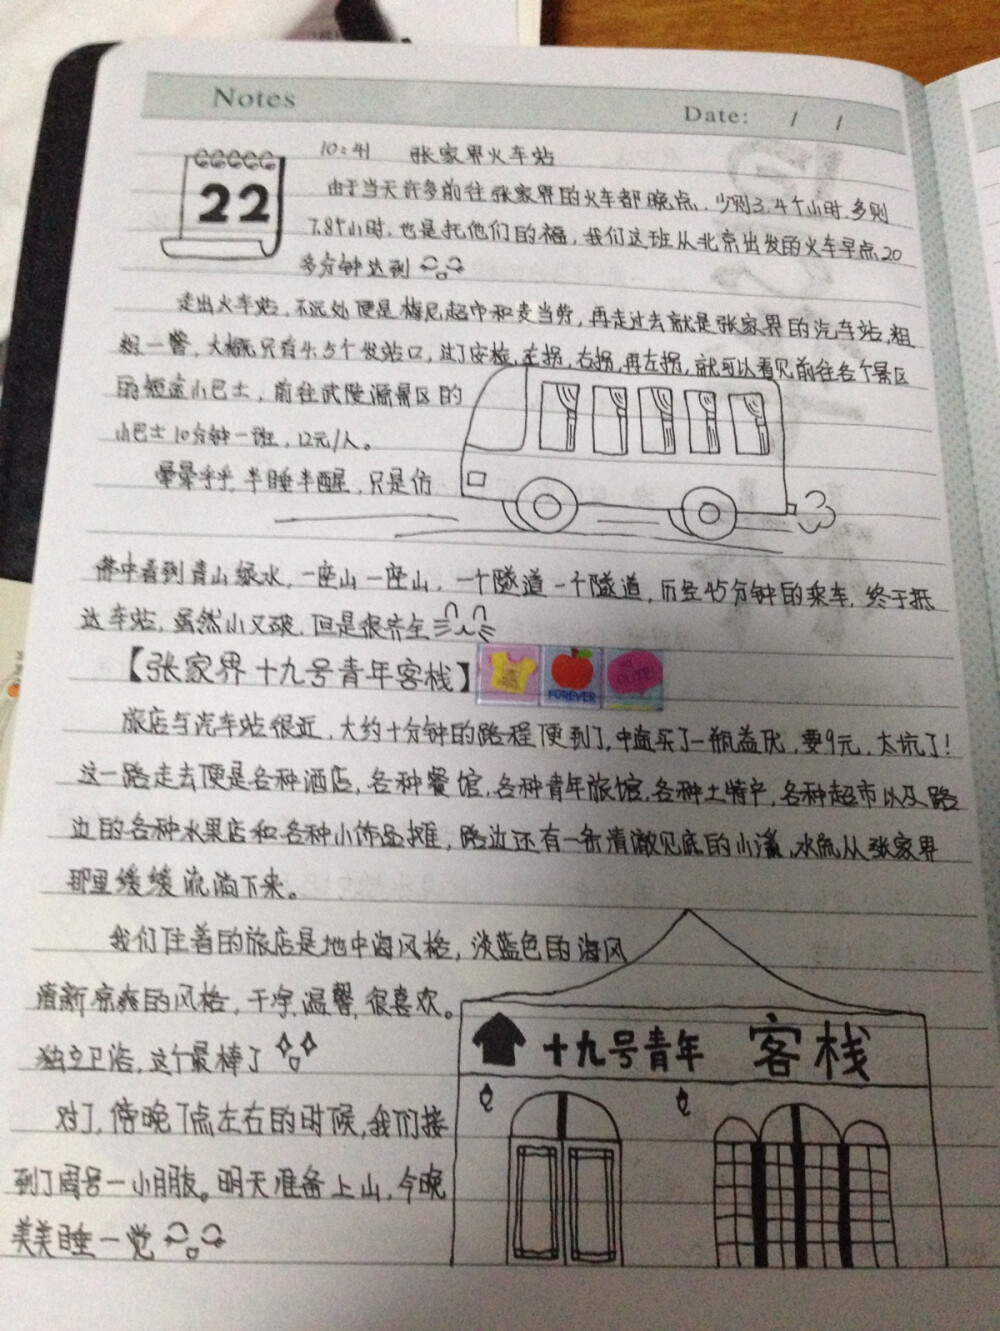 Notes
Date: / /
22
10:41 张家界火车站
由于当天许多前往张家界的火车都晚点，少则3.4个小时，多则
7.8个小时，也是托他们的福，我们这班从北京出发的火车早点20
多分钟达到
走出火车站，不远处便是梅尼超市和麦当劳，再走过去就是张家界的汽车站，粗
粗一瞥，大概只有4.5个发站口，过了安检，左拐，右拐，再左拐，就可以看见前往各个景区
的短途小巴士，前往武陵源景区的
小巴士10分钟一班，12元/人。
晕晕乎乎，半睡半醒，只是仿
佛中看到青山绿水，一座山一座山，一个隧道一个隧道，历经45分钟的乘车，终于抵
达车站，虽然小又破，但是很齐全
【张家界十九号青年客栈】
FOREVER
旅店与汽车站很近，大约十分钟的路程便到了，中途买了一瓶益伏，要9元，太坑了！
这一路走去便是各种酒店，各种餐馆，各种青年旅馆，各种土特产，各种超市以及路
边的各种水果店和各种小饰品摊，路边还有一条清澈见底的小溪，水流从张家界
那里缓缓流淌下来。
我们住着的旅店是地中海风格，淡蓝色的海风
清新凉爽的风格，干净，温馨，很喜欢。
独立卫浴，这个最棒了
十九号青年 客栈
对了，傍晚7点左右的时候，我们接
到了周号一小朋友。明天准备上山，今晚
美美睡一觉